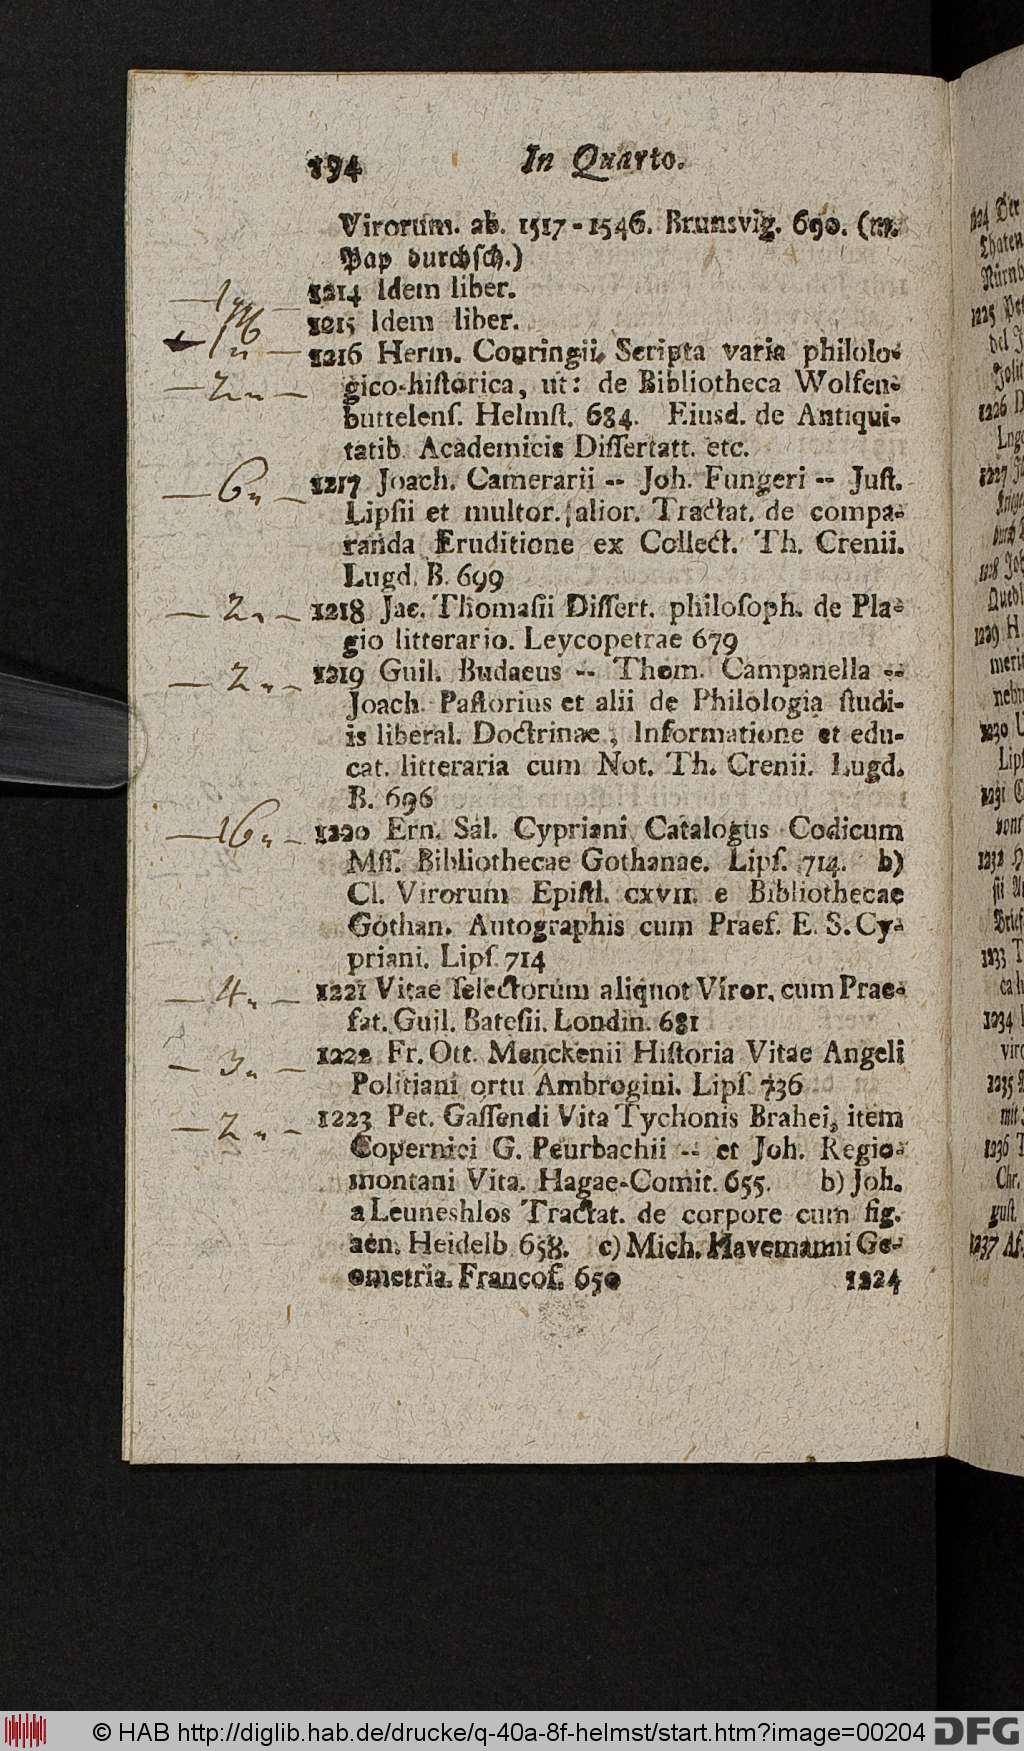 194 In Quarto.
Virorum. ab. 1517-1546. Brunsvig. 690. (m.
Pap durchſch.)
1214 Idem liber.
1215 Idem liber.
1216 Herm. Conringii, Scripta varia philolo-
— 2 „ — gico-hiſtorica, ut: de Bibliotheca Wolfen-
buttelenſ. Helmſt. 684. Eiusd. de Antiqui-
tatib. Academicis Diſſertatt. etc.
— 6 „ — 1217 Joach. Camerarii -- Joh. Fungeri -- Juſt.
Lipſii et multor. alior. Tractat. de compa-
randa Eruditione ex Collect. Th. Crenii.
Lugd. B. 699
— 2 „ — 1218 Jac. Thomaſii Diſſert. philoſoph. de Pla-
gio litterario. Leycopetrae 679
— 2 „ — 1219 Guil. Budaeus -- Thom. Campanella --
Joach. Paſtorius et alii de Philologia ſtudi-
is liberal. Doctrinae, Informatione et edu-
cat. litteraria cum Not. Th. Crenii. Lugd.
B. 696
— 16 „ — 1220 Ern. Sal. Cypriani Catalogus Codicum
Mſſ. Bibliothecae Gothanae. Lipſ. 714. b)
Cl. Virorum Epiſtl. CXVII. e Bibliothecae
Gothan. Autographis cum Praef. E. S. Cy-
priani. Lipſ. 714
— 4 „ — 1221 Vitae ſelectorum aliquot Viror. cum Prae-
fat. Guil. Bateſii. Londin. 681
— 3 „ — 1222 Fr. Ott. Menckenii Hiſtoria Vitae Angeli
Politiani ortu Ambrogini. Lipſ. 736
— 2 „ — 1223 Pet. Gaſſendi Vita Tychonis Brahei, item
Copernici G. Peurbachii -- et Joh. Regio-
montani Vita. Hagae-Comit. 655. b) Joh.
a Leuneshlos Tractat. de corpore cum fig.
aen. Heidelb. 658. c) Mich. Havemanni Ge-
ometria. Francof. 650 1224
© HAB http://diglib.hab.de/drucke/q-40a-8f-helmst/start.htm?image=00204 DFG